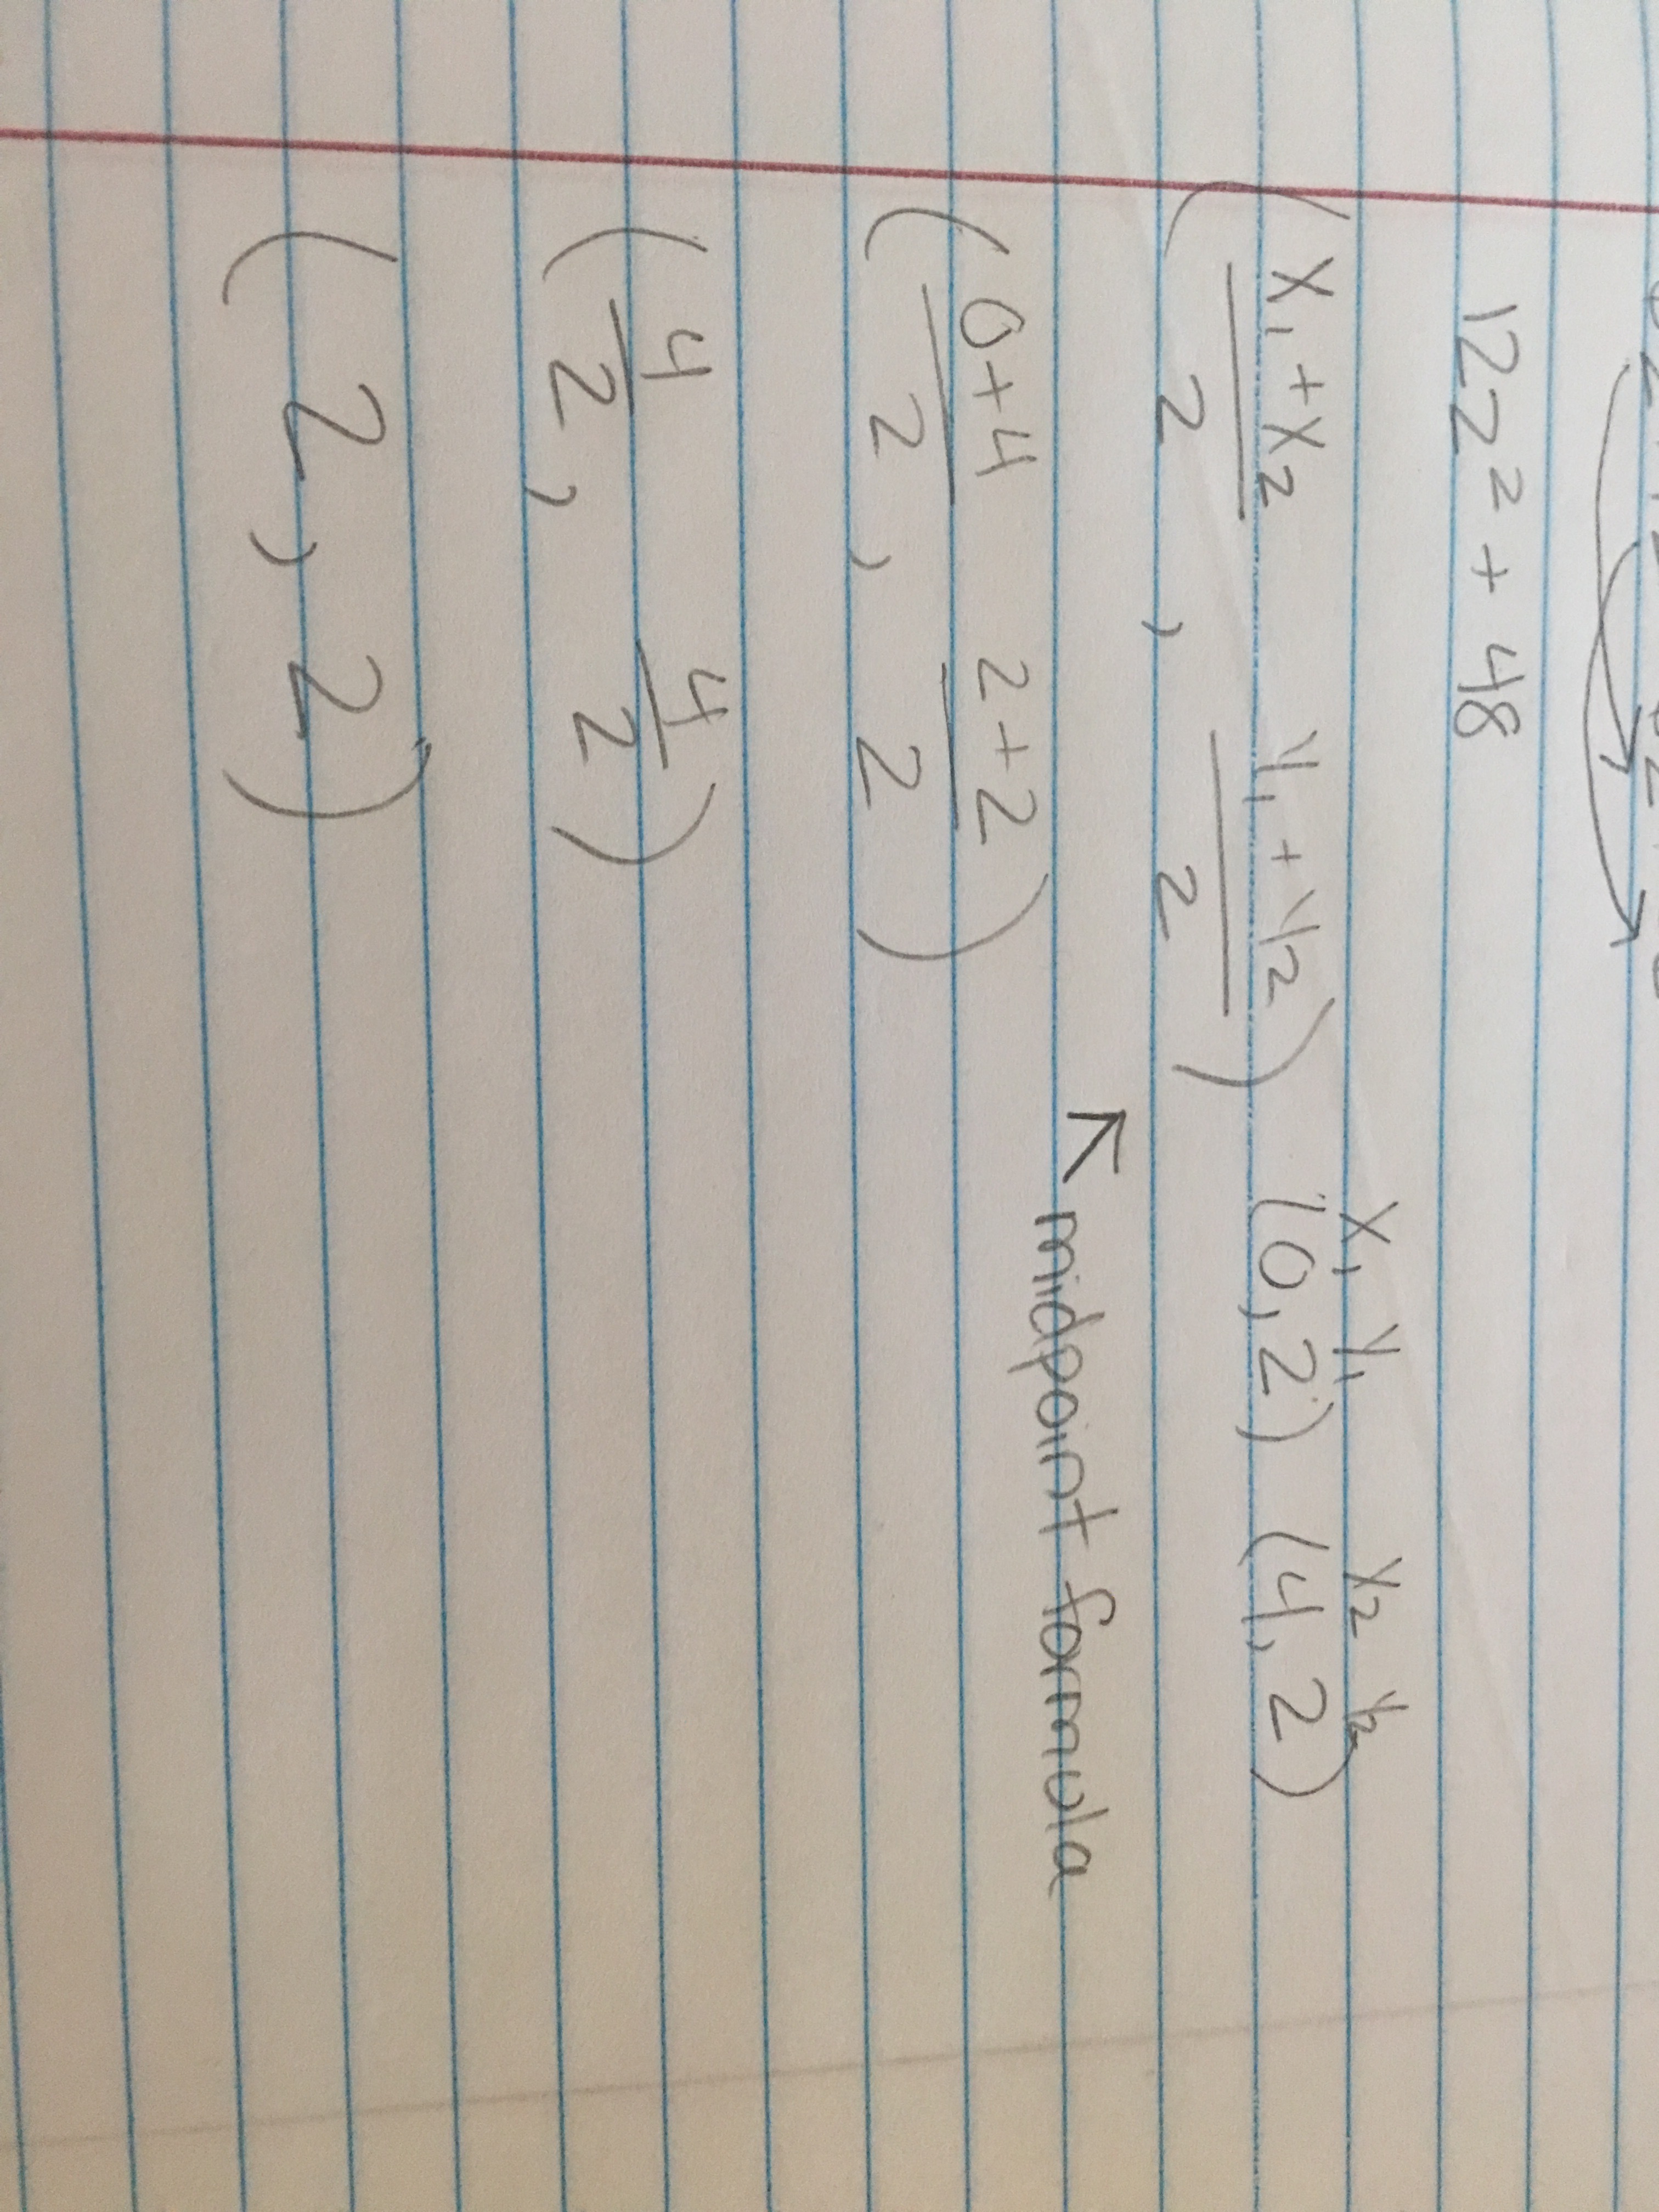 12z² + 48
X₁ Y₁ X₂ Y₂
(X₁ + X₂ / 2 , Y₁ + Y₂ / 2) (0, 2) (4, 2)
↖ midpoint formula
(0+4 / 2 , 2+2 / 2)
(4/2 , 4/2)
(2, 2)